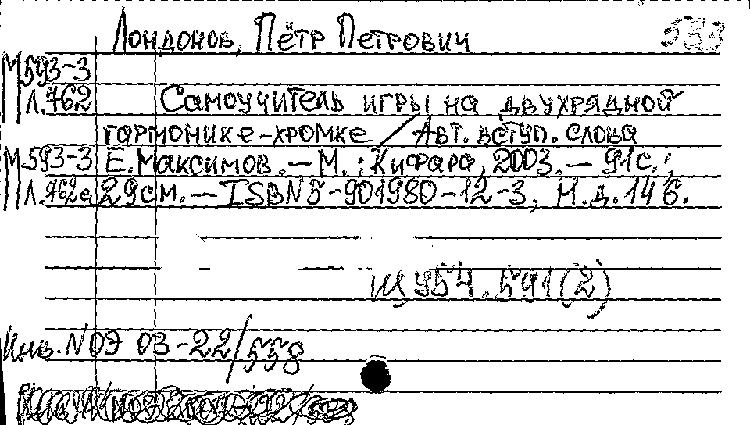 Лондонов, Пётр Петрович 533
М 593-3
Л.762 Самоучитель игры на двухрядной
гармонике-хромке / Авт. вступ. слова
М 593-3 Е. Максимов. — М. : Кифара, 2003. — 91 с. ;
Л.762а 29 см. — ISBN 5-901980-12-3, Н.д. 146.
Щ 954.591(2)
Инв. № ОЭ 03-22/558